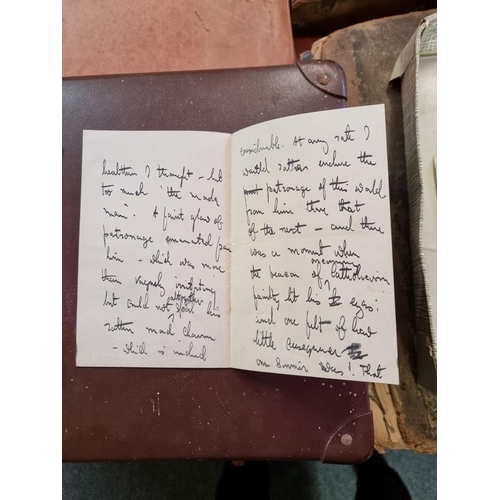 healthier I thought – but
too much 'the made
man'. A faint glow of
patronage emanated from
him – which was more
than vaguely irritating
but could not
his
rather mad charm
– which is indeed
considerable. At any rate I
would rather endure the
patronage of this world
from him than that
of the next – and there
was a moment when
the beacon of Catholicism
faintly lit his eyes:
and one felt of how
little consequence
one Summer was! That